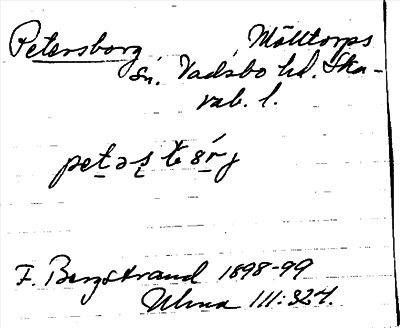 Petersborg Mölltorps
sn. Vadsbo hd. Ska-
rab. l.
F. Bergstrand 1898-99
Ulma 111:324.